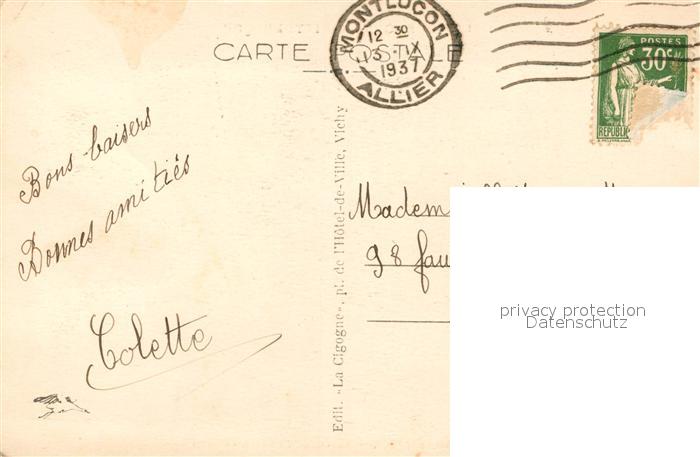 CARTE POSTALE
MONTLUCON
12 30
13 IX
1937
ALLIER
POSTES
30c
REPUBLI
Bons baisers
Bonnes amitiés
Colette
Edit. "La Cigogne", pl. de l'Hôtel-de-Ville, Vichy
Madem
98 fau
privacy protection
Datenschutz